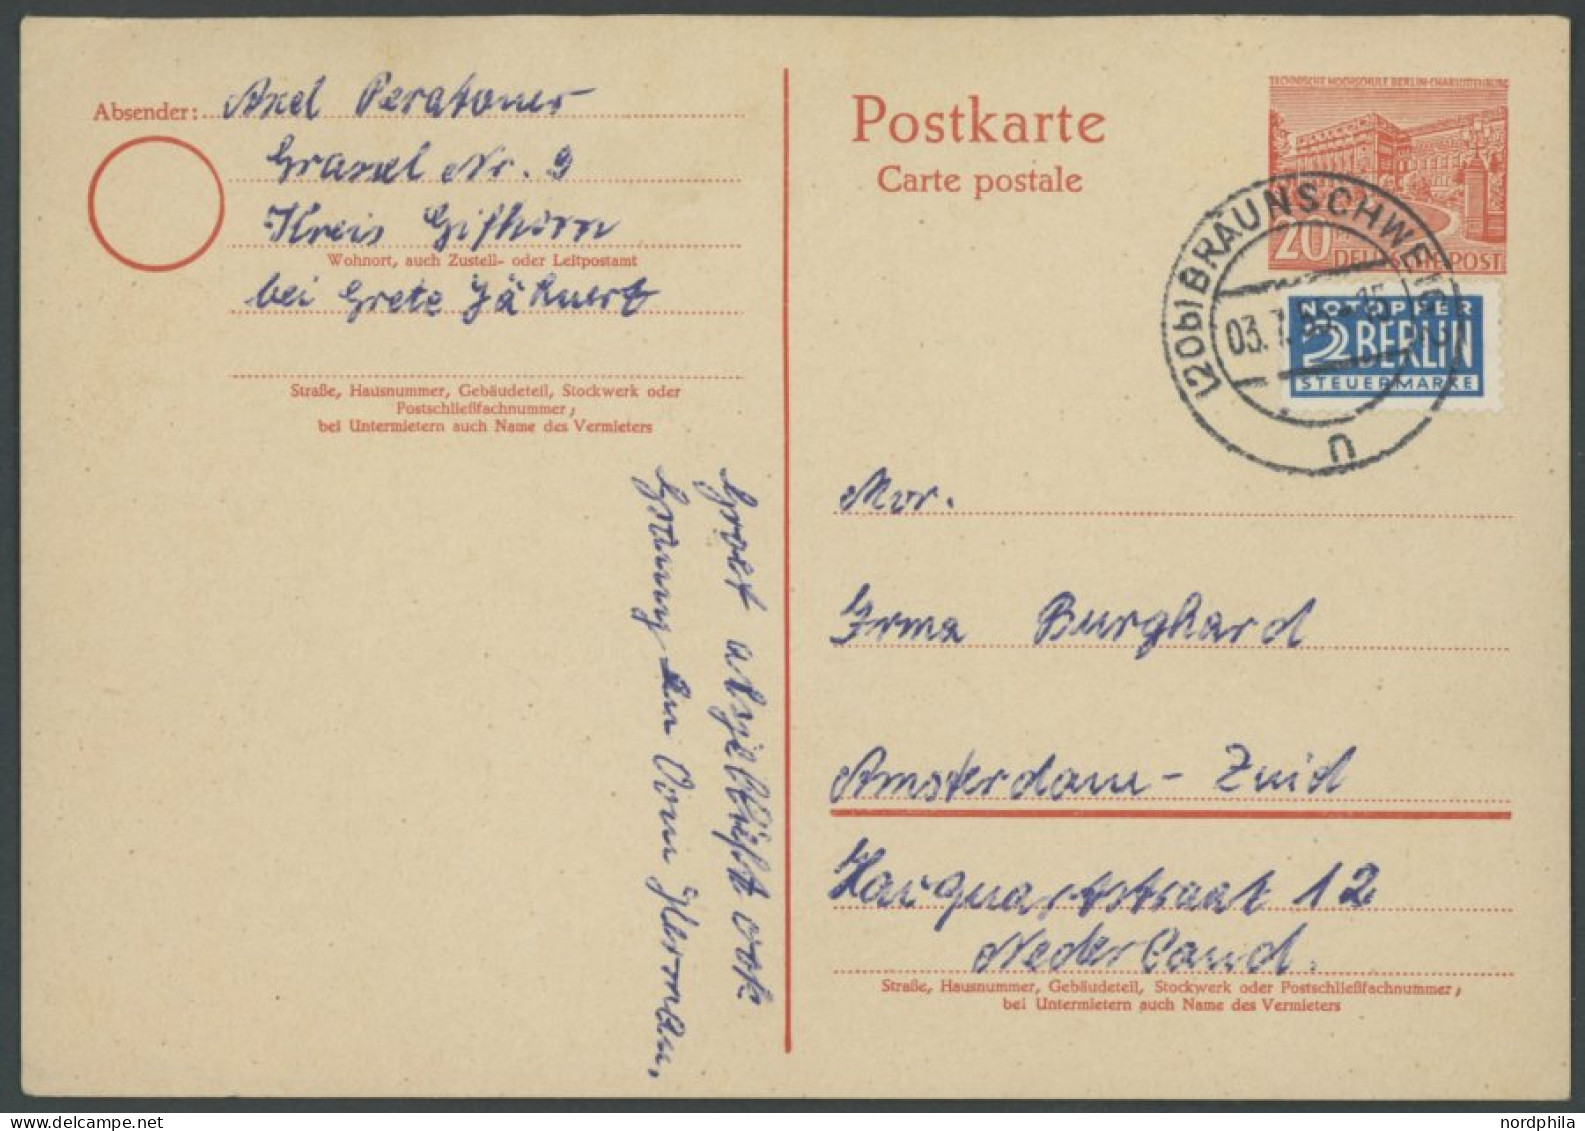 Absender: Axel Peratoner
Grassel Nr. 9
Kreis Gifhorn
Wohnort, auch Zustell- oder Leitpostamt
bei Grete Jäkuert
Straße, Hausnummer, Gebäudeteil, Stockwerk oder
Postschließfachnummer;
bei Untermietern auch Name des Vermieters
Groet ook
Oom Herman.
Postkarte
Carte postale
TECHNISCHE HOCHSCHULE BERLIN-CHARLOTTENBURG
20 DEUTSCHE POST
(20b) BRAUNSCHWEIG
03.
n
NOTOPFER
2 BERLIN
STEUERMARKE
Mvr.
Irma Burghard
Amsterdam - Zuid
12
Nederland.
Straße, Hausnummer, Gebäudeteil, Stockwerk oder Postschließfachnummer;
bei Untermietern auch Name des Vermieters
nordphila